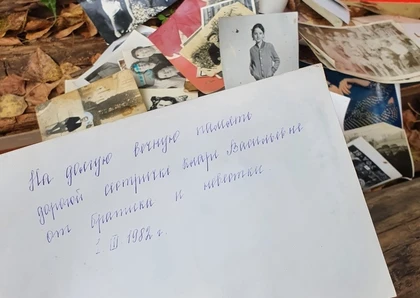 На долгую вечную память
дорогой сестричке Кларе Васильевне
от братика и невестки
III 1982 г.